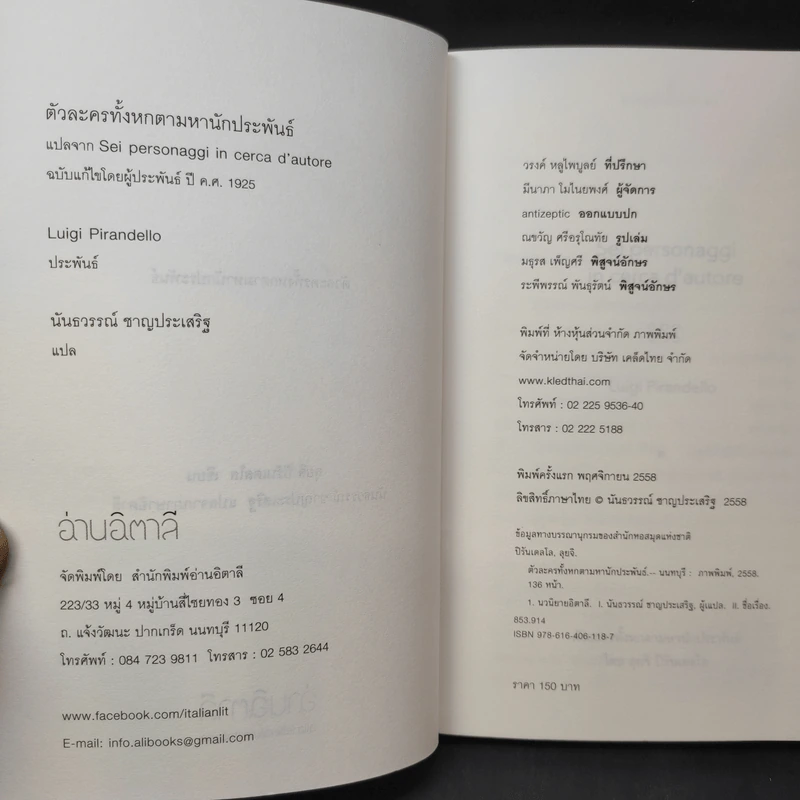 ตัวละครทั้งหกตามหานักประพันธ์
แปลจาก Sei personaggi in cerca d'autore
ฉบับแก้ไขโดยผู้ประพันธ์ ปี ค.ศ. 1925
Luigi Pirandello
ประพันธ์
นันธวรรณ์ ชาญประเสริฐ
แปล
อ่านอิตาลี
จัดพิมพ์โดย สำนักพิมพ์อ่านอิตาลี
223/33 หมู่ 4 หมู่บ้านสี่ไชยทอง 3 ซอย 4
ถ. แจ้งวัฒนะ ปากเกร็ด นนทบุรี 11120
โทรศัพท์ : 084 723 9811 โทรสาร : 02 583 2644
www.facebook.com/italianlit
E-mail: info.alibooks@gmail.com
วรงค์ หลูไพบูลย์ ที่ปรึกษา
มีนาภา โมไนยพงศ์ ผู้จัดการ
antizeptic ออกแบบปก
ณขวัญ ศรีอรุโณทัย รูปเล่ม
มธุรส เพ็ญศรี พิสูจน์อักษร
ระพีพรรณ์ พันธุรัตน์ พิสูจน์อักษร
พิมพ์ที่ ห้างหุ้นส่วนจำกัด ภาพพิมพ์
จัดจำหน่ายโดย บริษัท เคล็ดไทย จำกัด
www.kledthai.com
โทรศัพท์ : 02 225 9536-40
โทรสาร : 02 222 5188
พิมพ์ครั้งแรก พฤศจิกายน 2558
ลิขสิทธิ์ภาษาไทย © นันธวรรณ์ ชาญประเสริฐ 2558
ข้อมูลทางบรรณานุกรมของสำนักหอสมุดแห่งชาติ
ปิรันเดลโล, ลุยจิ.
ตัวละครทั้งหกตามหานักประพันธ์.-- นนทบุรี : ภาพพิมพ์, 2558.
136 หน้า.
1. นวนิยายอิตาลี. I. นันธวรรณ์ ชาญประเสริฐ, ผู้แปล. II. ชื่อเรื่อง.
853.914
ISBN 978-616-406-118-7
ราคา 150 บาท